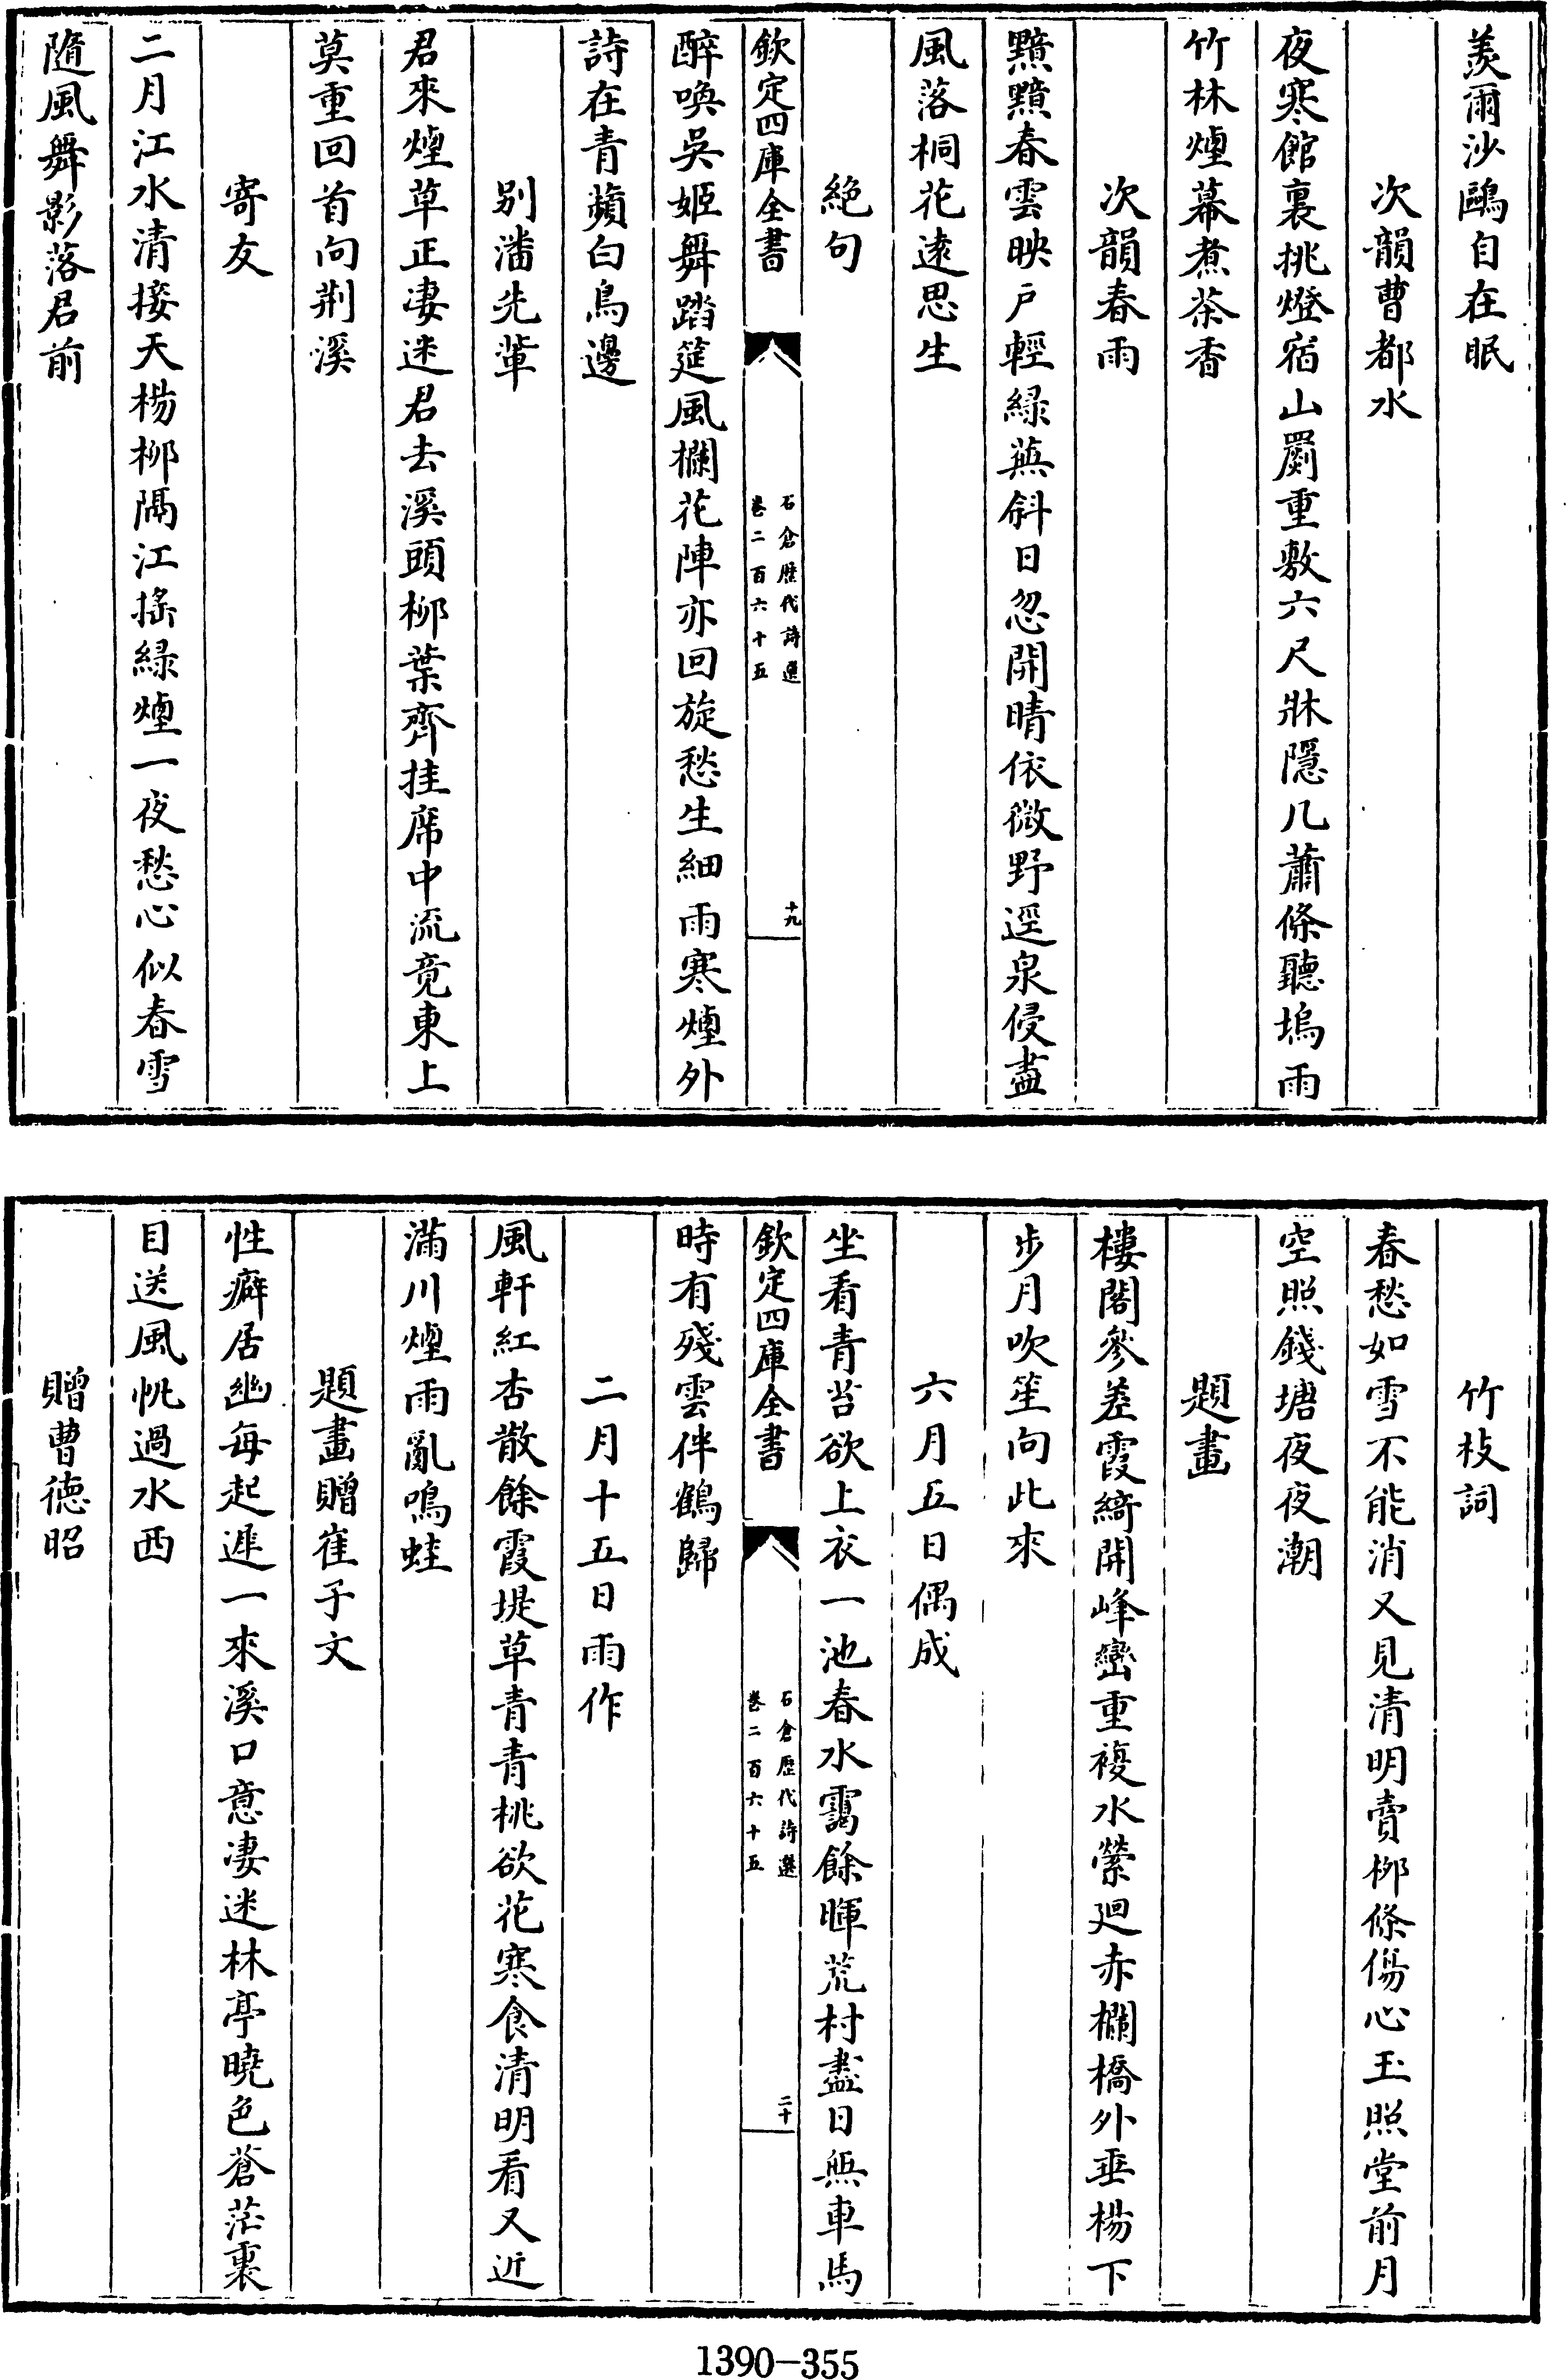 羨爾沙鷗自在眠
次韻曹都水
夜寒館裏挑燈宿山罽重敷六尺牀隱几蕭條聽塢雨
竹林煙幕煮茶香
次韻春雨
黯黯春雲映户輕綠蕪斜日忽開晴依微野逕泉侵盡
風落桐花遠思生
絶句
欽定四庫全書
石倉歷代詩選
卷二百六十五
十九
醉喚吳姬舞踏筵風欄花陣亦回旋愁生細雨寒煙外
詩在青蘋白鳥邊
别潘先輩
君來煙草正凄迷君去溪頭栁葉齊挂席中流竟東上
莫重回首向荆溪
寄友
二月江水清接天楊栁隔江揺綠煙一夜愁心似春雪
隨風舞影落君前
竹枝詞
春愁如雪不能消又見清明賣栁條傷心玉照堂前月
空照錢塘夜夜潮
題畫
樓閣參差霞綺開峰巒重複水縈廻赤欄橋外垂楊下
步月吹笙向此來
六月五日偶成
坐看青苔欲上衣一池春水靄餘暉荒村盡日無車馬
欽定四庫全書
石倉歷代詩選
卷二百六十五
二十
時有殘雲伴鶴歸
二月十五日雨作
風軒紅杏散餘霞堤草青青桃欲花寒食清明看又近
滿川煙雨亂鳴蛙
題畫贈崔子文
性癖居幽每起遲一來溪口意凄迷林亭曉色蒼茫裏
目送風帆過水西
贈曹徳昭
1390-355